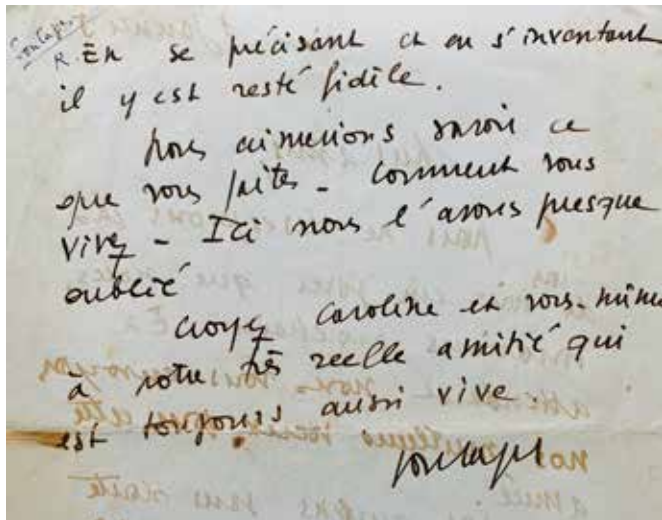 Soulages
R. En se précisant et en s'inventant
il y est resté fidèle.
Nous aimerions savoir ce
que vous faites - comment vous
vivez - Ici nous l'avons presque
oublié
Croyez Caroline et vous-même
à notre très réelle amitié qui
est toujours aussi vive.
Soulages